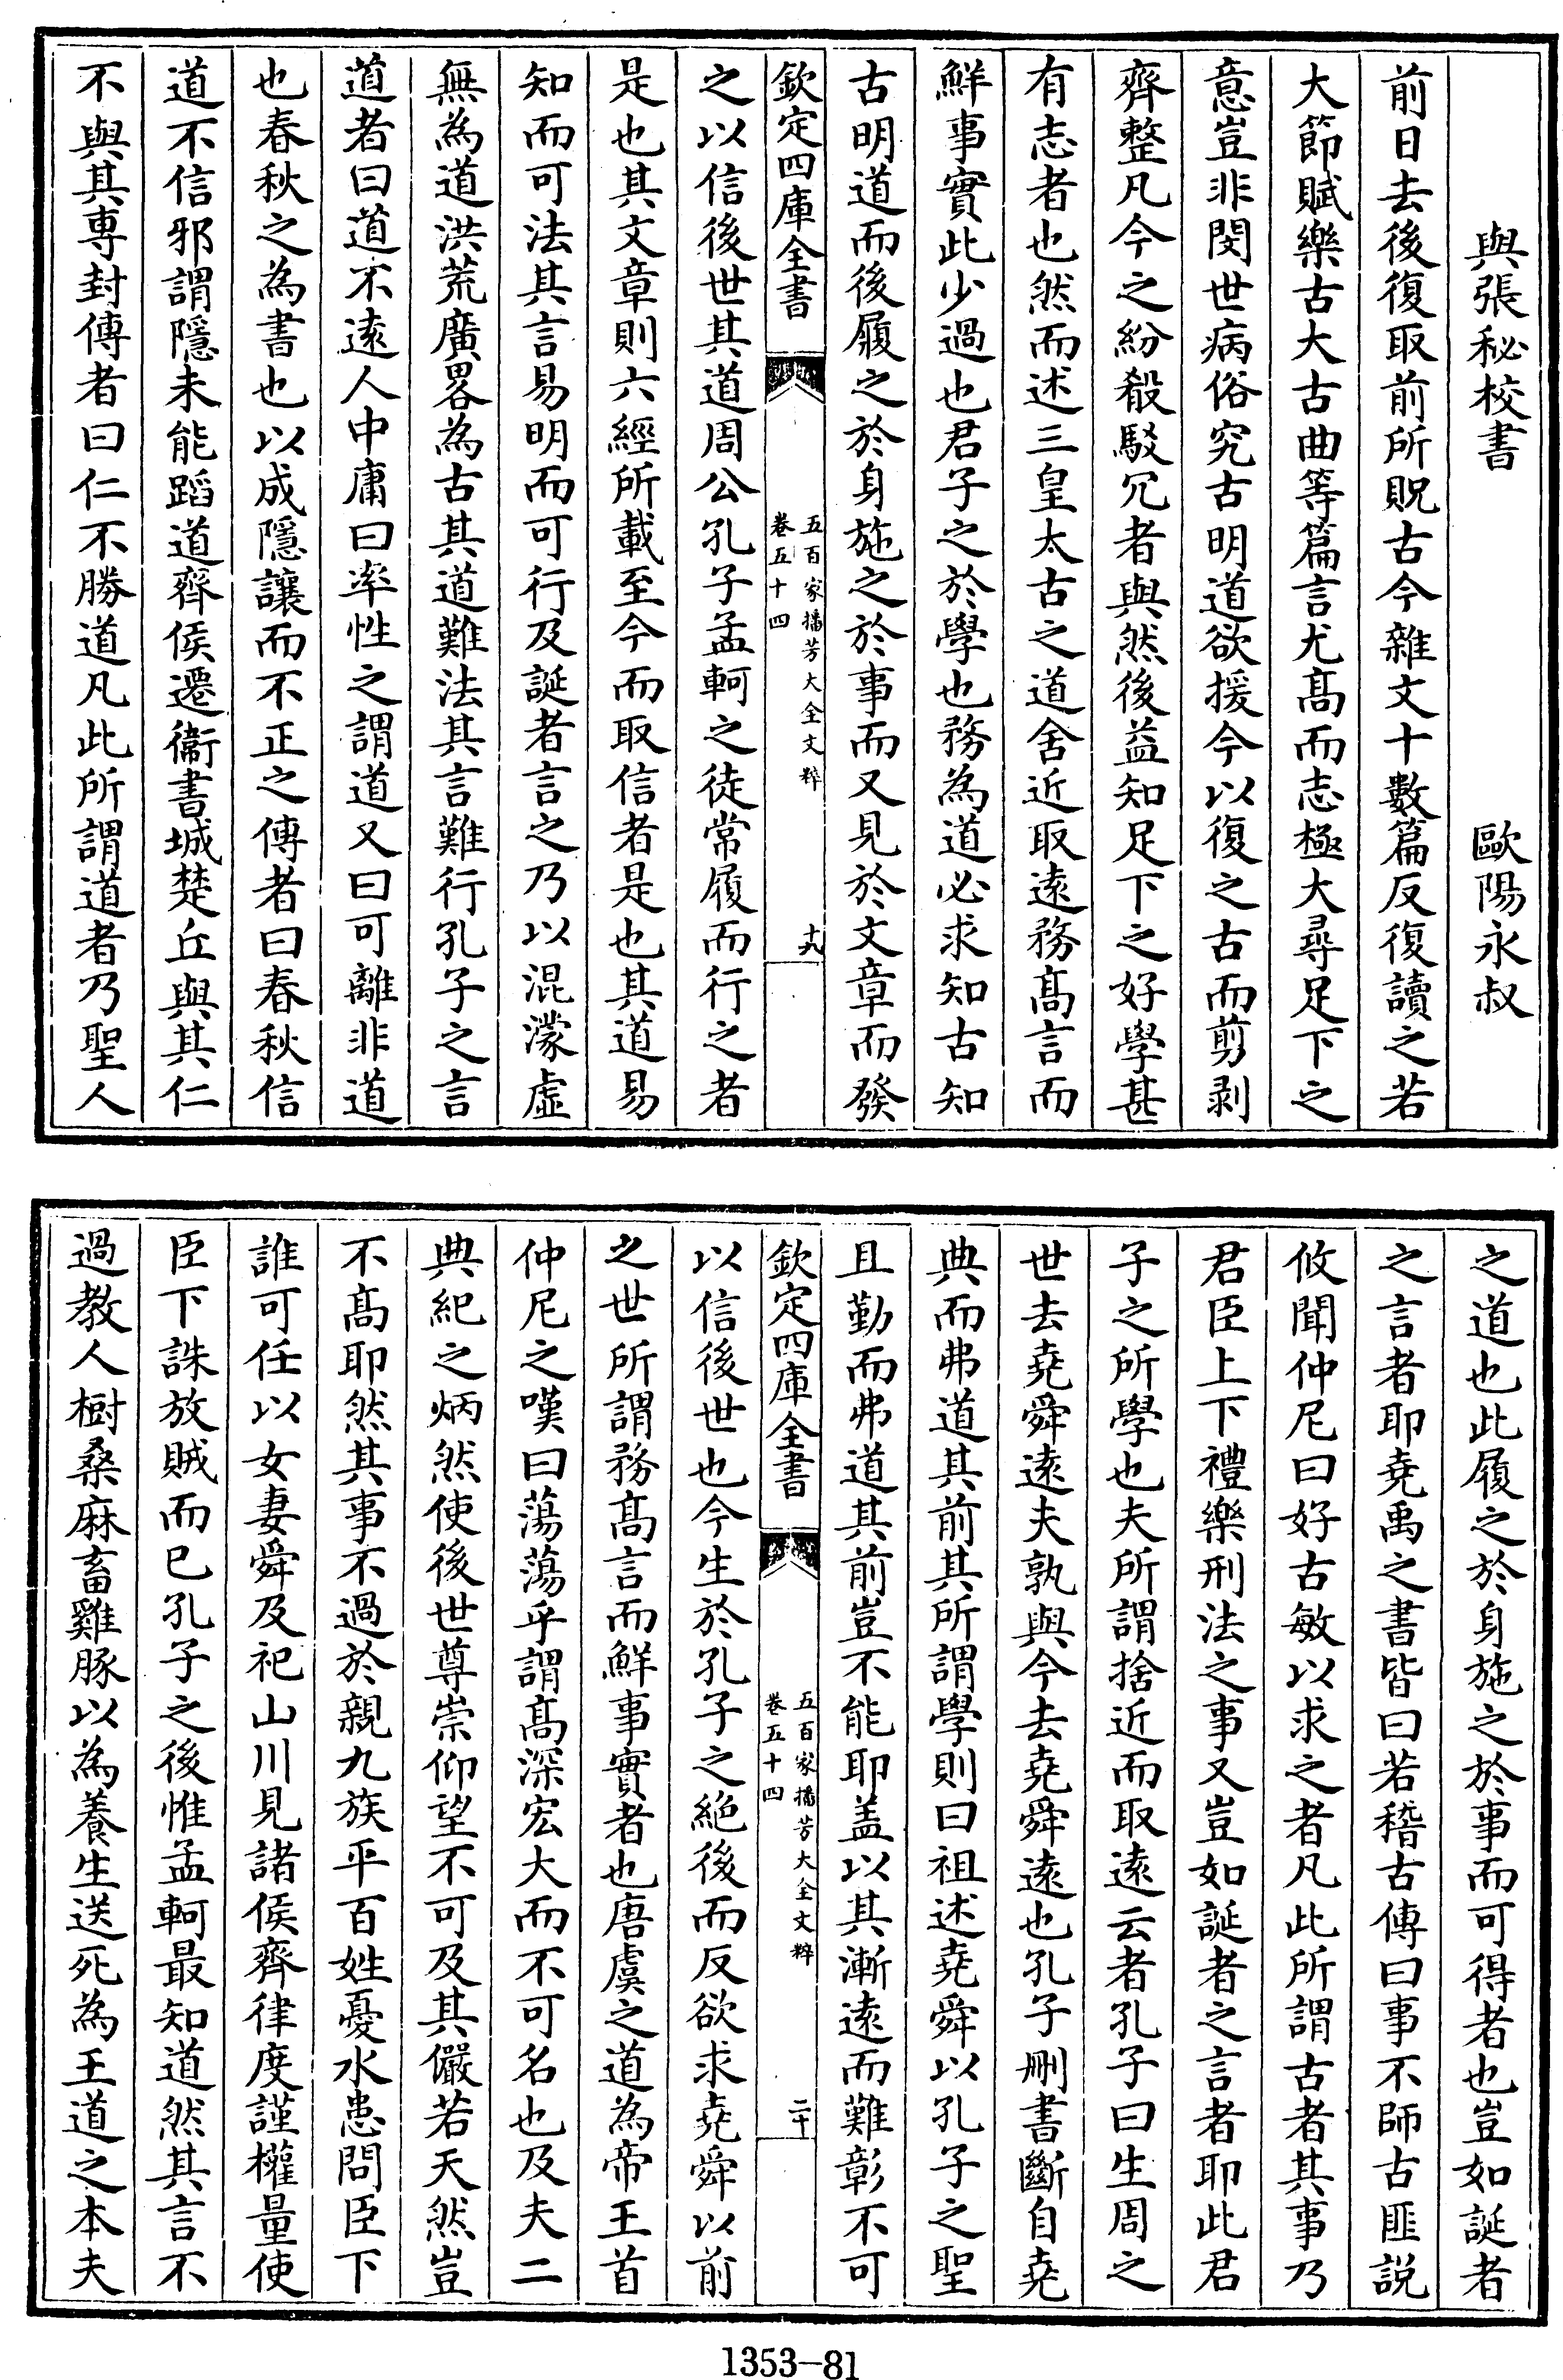 與張秘校書　歐陽永叔
前日去後復取前所貺古今雜文十數篇反復讀之若
大節賦樂古大古曲等篇言尤髙而志極大尋足下之
意豈非閔世病俗究古明道欲援今以復之古而剪剥
齊整凡今之紛殽駁冗者與然後益知足下之好學甚
有志者也然而述三皇太古之道舍近取逺務髙言而
鮮事實此少過也君子之於學也務為道必求知古知
古明道而後履之於身施之於事而又見於文章而發
欽定四庫全書
五百家播芳大全文粹
卷五十四
十九
之以信後世其道周公孔子孟軻之徒常履而行之者
是也其文章則六經所載至今而取信者是也其道易
知而可法其言易明而可行及誕者言之乃以混濛虚
無為道洪荒廣畧為古其道難法其言難行孔子之言
道者曰道不逺人中庸曰率性之謂道又曰可離非道
也春秋之為書也以成隱讓而不正之傳者曰春秋信
道不信邪謂隱未能蹈道齊侯遷衞書城楚丘與其仁
不與其專封傳者曰仁不勝道凡此所謂道者乃聖人
之道也此履之於身施之於事而可得者也豈如誕者
之言者耶堯禹之書皆曰若稽古傳曰事不師古匪說
攸聞仲尼曰好古敏以求之者凡此所謂古者其事乃
君臣上下禮樂刑法之事又豈如誕者之言者耶此君
子之所學也夫所謂捨近而取逺云者孔子曰生周之
世去堯舜逺夫孰與今去堯舜逺也孔子刪書斷自堯
典而弗道其前其所謂學則曰祖述堯舜以孔子之聖
且勤而弗道其前豈不能耶盖以其漸逺而難彰不可
欽定四庫全書
五百家播芳大全文粹
卷五十四
二十
以信後世也今生於孔子之絶後而反欲求堯舜以前
之世所謂務髙言而鮮事實者也唐虞之道為帝王首
仲尼之嘆曰蕩蕩乎謂髙深宏大而不可名也及夫二
典紀之炳然使後世尊崇仰望不可及其儼若天然豈
不髙耶然其事不過於親九族平百姓憂水患問臣下
誰可任以女妻舜及祀山川見諸侯齊律度謹權量使
臣下誅放賊而已孔子之後惟孟軻最知道然其言不
過教人樹桑麻畜雞豚以為養生送死為王道之本夫
1353—81